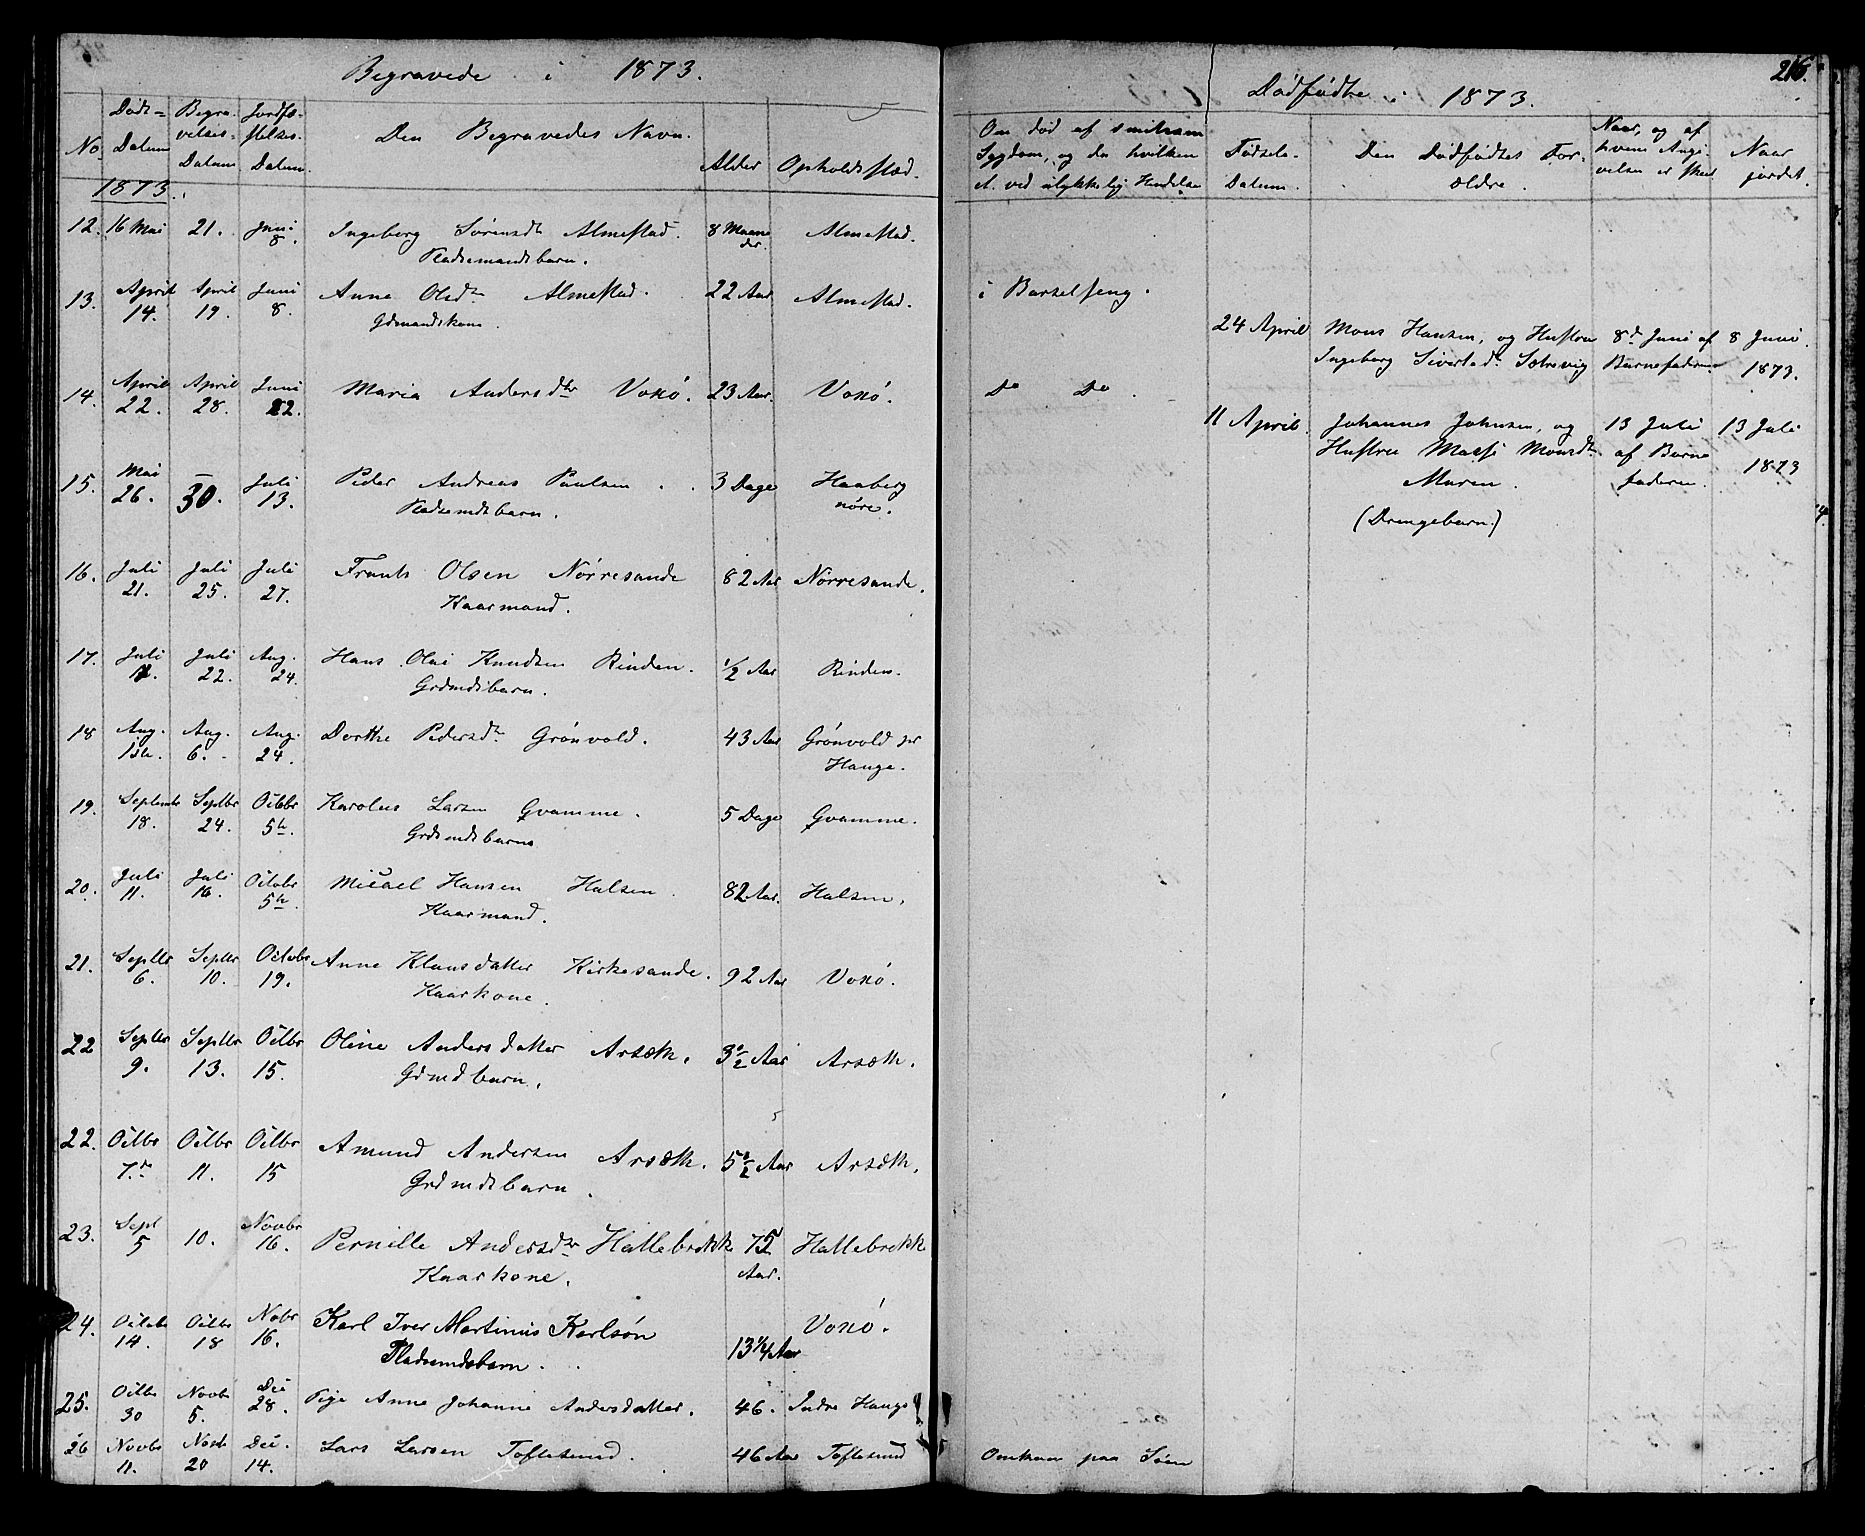 Begravede i 1873.
No. Døds- Datum Begravelses- Datum Jordfæstelses- Datum. Den Begravedes Navn. Alder Opholdssted.
1873.
12. 16 Mai 21. Juni 8. Ingeborg Sørensdt Almestad. 8 Maaneder. Almestad.
Pladsemandsbarn.
13. April 14. April 19. Juni 8. Anne Olsdtr Almestad. 22 Aar Almestad.
Gdmandskone.
14. April 22. April 28. Juni 22. Maria Andersdtr Voxö. 23 Aar. Voxö.
15. Mai 26. – 30. Juli 13. Peder Andreas Paulsen. 3 Dage Haaberg nöre.
Pladsemdsbarn.
16. Juli 21. Juli 25. Juli 27. Frants Olsen Nörresande 82 Aar Nörresande.
Kaarmand.
17. Juli Juli 22. Aug. 24. Hans Olai Knudsen Rinden. ½ Aar Rinden.
Grdmdsbarn.
18 Aug. 1ste. Aug. 6. Aug. 24. Dorthe Pedersdtr Grönvold. 43 Aar Grönvold pr Hauge.
19. Septembr 18. Septbr 24. Octbr 5te. Karolus Larsen Qvamme. 5 Dage Qvamme.
Grdsmdsbarn
20. Juli 11. Juli 16. Octobr 5te. Micael Hansen Halsen. 82 Aar. Halsen.
Kaarmand.
21. Septbr 6. Septbr 10. Octobr 19. Anne Klausdatter Kirkesande. 92 Aar Voxö.
Kaarkone.
22 Septbr 9. Septbr 13. Octbr 15. Oline Andersdatter Arsæth. 3½ Aar Arsæth.
Gdmdbarn.
22. Octbr 7de Octbr 11. Octbr 15 Amund Andersen Arsæth. 5½ Aar Arsæth.
Grdmdsbarn.
23. Sept 5 10. Novbr 16. Pernille Andersdtr Hallebrekk 75 Aar. Hallebrekk
Kaarkone.
24. Octobr 14. Octbr 18 Nobr 16. Karl Iver Martinus Karlsön 13¼ Aar Voxö.
Pladsemdsbarn.
25. Octbr 30 Novbr 5. Dec 28. Pige Anne Johanne Andersdatter. 46. Indre Hauge
26 Novbr 11. Novb 20 Dec. 14. Lars Larsen Toftesund. 46 Aar Toftesund
216.
Dødfødte i 1873.
Om død af smitsom
Sygdom, og da hvilken
el. ved ulykkelig Hendelse
Fødsels- Datum.
Den Dødfødtes Forældre.
Naar, og af
hvem Angi-
velsen er skeet
Naar jordet.
i Barselseng.
24 April Mons Hansen, og Hustru 8de Juni af 8 Juni.
Ingeborg Sivertsdtr Sætrevig Barnefaderen 1873.
Do Do.
11 April. Johannes Johnsen, og 13 Juli 13 Juli
Hustru Massi Monsdtr af Barne 1873
Muren. faderen.
(Drengebarn.)
Omkom paa Søen